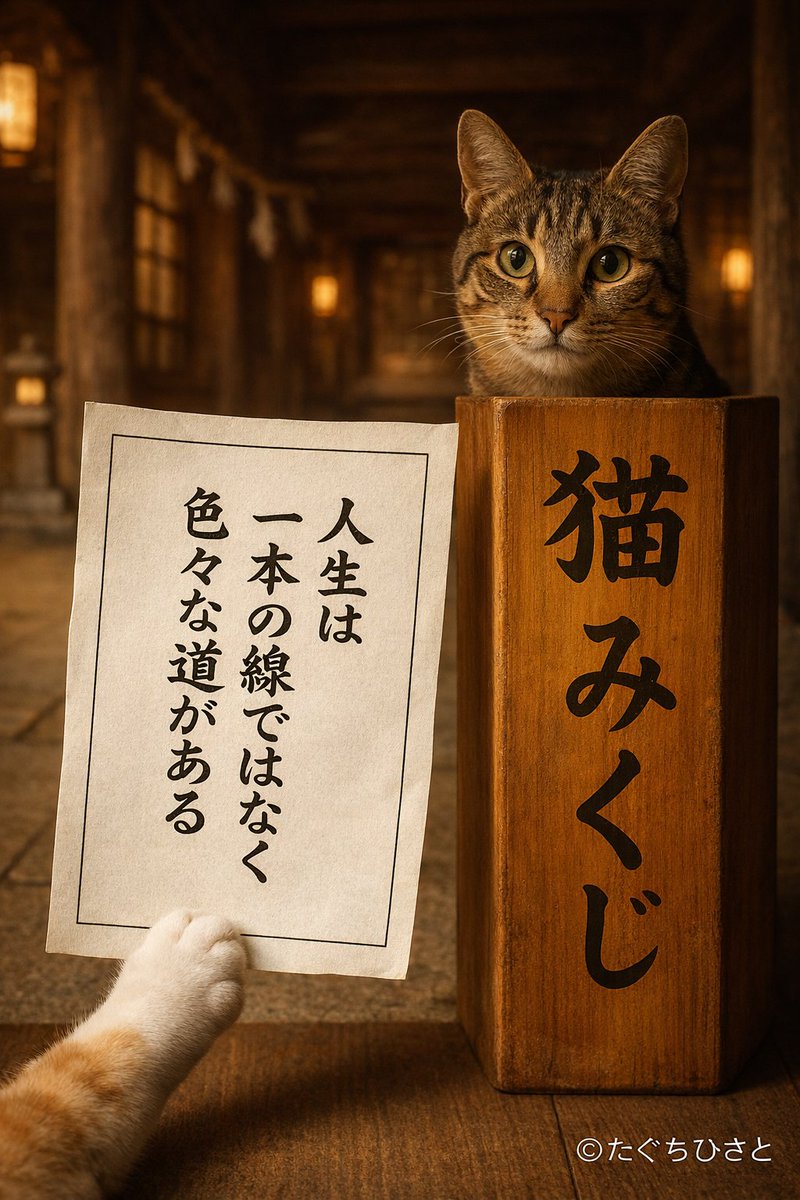 人生は
一本の線ではなく
色々な道がある
猫みくじ
©たぐちひさと